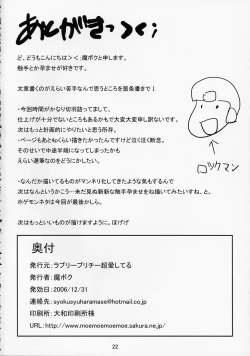 あとがきっ＞＜；
ど、どうもこんにちは＞＜；魔ボクと申します。
触手とか孕ませが好きです。
文章書くのがえらい苦手なんで思うところを箇条書きで↓
・今回時間がかなり切羽詰ってまして、
仕上げが十分でないところもあるかもで大変大変申し訳ないです。
次はもっと計画的にやりたいと思う所存。
・ページもあと4pぐらい描きたかったんですけど泣く泣く断念。
そのせいで中途半端になってしまったかも
えらい遅筆なのをどうにかしたいです。
・なんだか描いてるものがマンネリ化してきたような気もするんで
次はなんというかこう…未だ見ぬ斬新な触手孕ませをね描いてみたいですね、と
ホゲモンネタは今回が最後かしら。
次はもっといいものが描けますように。ほげげ
ロックマン
奥付
発行元：ラブリープリチー超愛してる
発行者：魔ボク
発効日：2006/12/31
連絡先：syokusyuharamase@hotmail.co.jp
印刷所：大和印刷所様
URL：http://www.moemoemoemoe.sakura.ne.jp/
22